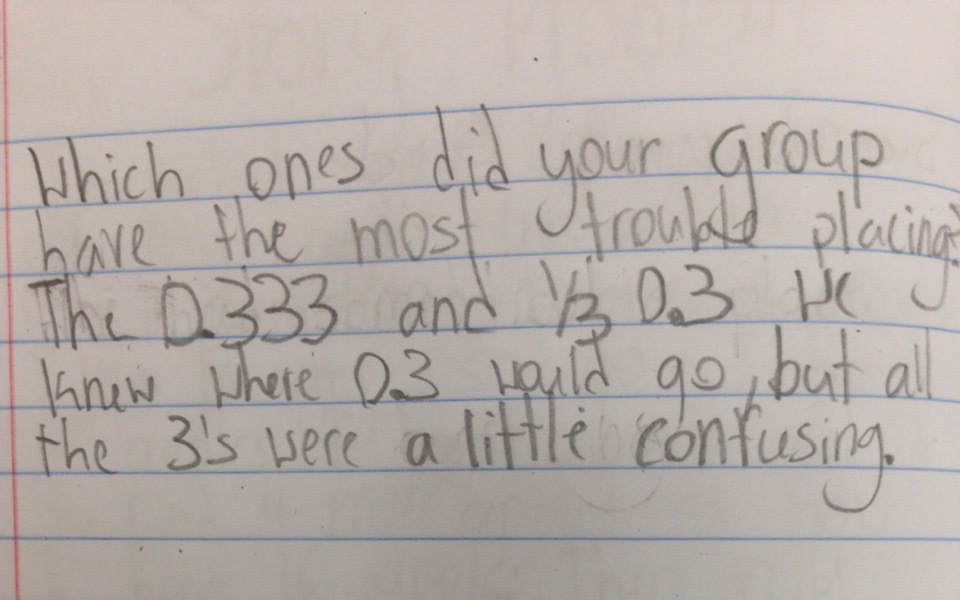 Which ones did your group
have the most trouble placing?
The 0.333 and 1/3 0.3 We
knew where 0.3 would go, but all
the 3's were a little confusing.